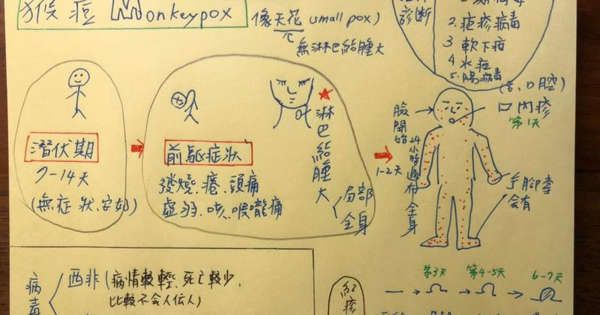 猴痘 Monkeypox
像天花(small pox)
無淋巴結腫大
診斷
2. 疱疹病毒
3. 軟下疳
4. 水痘
5. 腸病毒
(舌、口腔)
口內疹
第1天
潛伏期
7-14天
(無症狀、安好)
前驅症狀
發燒、痛、頭痛
虛弱、咳、喉嚨痛
淋巴結腫大
局部
全身
1-2天
臉開始
24小時遍布全身
手腳掌
會有
病毒
西非(病情較輕、死亡較少,
比較不會人傳人)
紅疹
第3天
第4-5天
6-7天